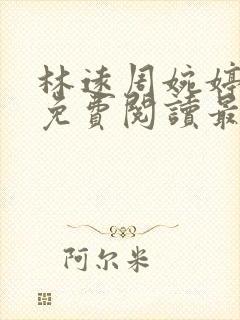 林述周婉婷
免費閱讀最
阿尔米